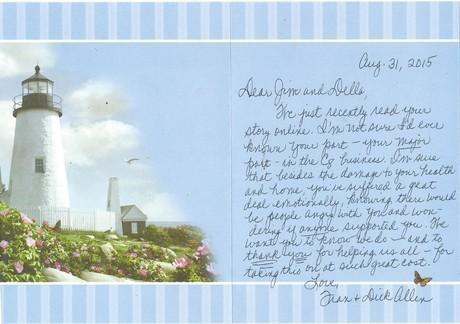 Aug. 31, 2015
Dear Jim and Della,
I've just recently read your
story online. I'm not sure I'd ever
known your part – your major
part – in the C8 business. I'm sure
that besides the damage to your health
and home, you've suffered a great
deal emotionally, knowing there would
be people angry with you and won-
dering if anyone supported you. I've
want you to know we do – and to
thank you for helping us all – for
taking this on at such great cost!
Love,
Fran + Dick Allen